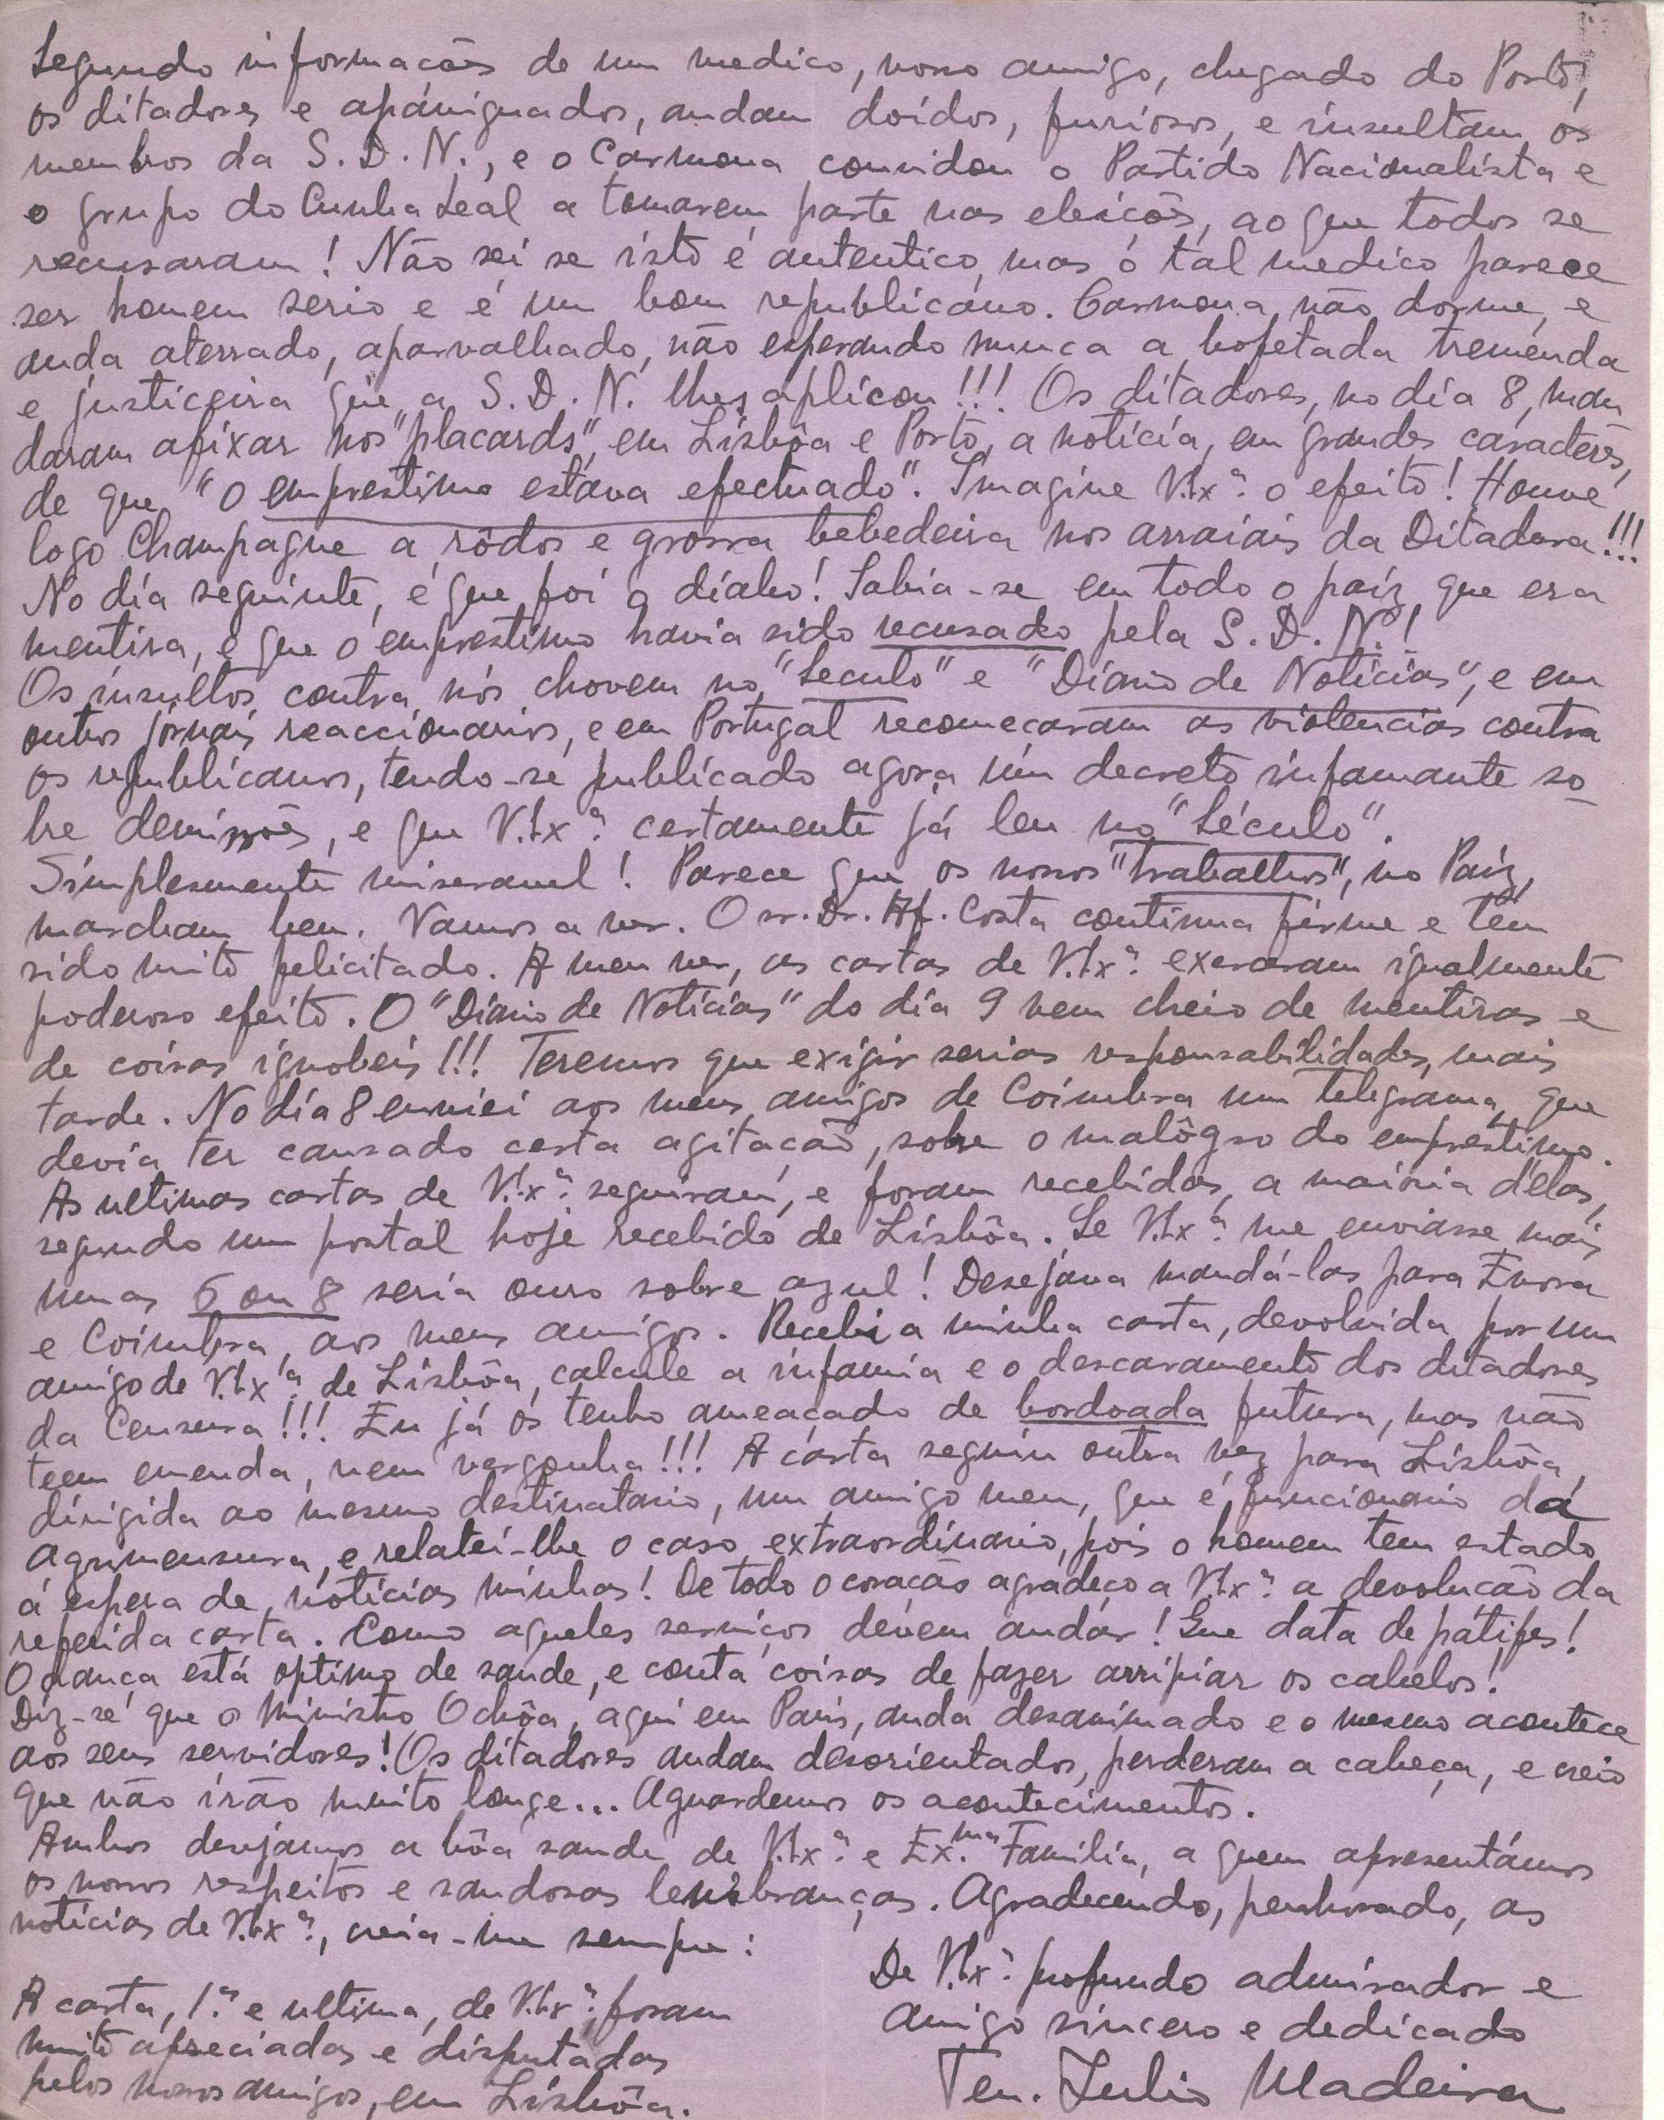 Segundo informacões de um medico, nosso amigo, chegado do Porto,
os ditadores e apàniguados, andam doidos, furiosos, e insultam os
membros da S. D. N., e o Carmona convidou o Partido Nacionalista e
o grupo do Cunha Leal a tomarem parte nas eleicões, ao que todos se
recusaram! Não sei se isto é autentico, mas o tal medico parece
ser homem serio e é um bom republicano. Carmona não dorme, e
anda aterrado, aparvalhado, não esperando nunca a bofetada tremenda
e justiceira que a S. D. N. lhes aplicou!!! Os ditadores, no dia 8, man
daram afixar nos "placards", em Lisbôa e Porto, a noticia, em grandes caracteres,
de que "o emprestimo estava efectuado". Imagine V. Ex.ª o efeito! Houve
logo Champagne a rôdos e grossa bebedeira nos arraiais da Ditadura!!!
No dia seguinte, é que foi o diabo! Sabia-se em todo o paiz que era
mentira, e que o emprestimo havia sido recusado pela S. D. N.!
Os insultos contra nós chovem no "Seculo" e "Diario de Noticias", e em
outros jornais reaccionarios, e em Portugal recomecaram as violencias contra
os republicanos, tendo-se publicado agora um decreto infamante so-
bre demissões, e que V. Ex.ª certamente já leu no "Século".
Simplesmente miseravel! Parece que os nossos "trabalhos", no Paiz,
marcham bem. Vamos a ver. O sr. Dr. Af. Costa continua firme e tem
sido muito felicitado. A meu ver, as cartas de V. Ex.ª exerceram igualmente
poderoso efeito. O "Diario de Noticias" do dia 9 vem cheio de mentiras e
de coisas ignobeis!!! Teremos que exigir serias responsabilidades, mais
tarde. No dia 8 enviei aos meus amigos de Coimbra um telegrama, que
devia ter causado certa agitacão, sobre o malôgro do emprestimo.
As ultimas cartas de V. Ex.ª seguiram, e foram recebidas, a maioria délas,
segundo um postal hoje recebido de Lisbôa. Se V. Ex.ª me enviasse mais
umas 6 ou 8 seria ouro sobre azul! Desejava mandá-las para Evora
e Coimbra, aos meus amigos. Recebi a minha carta, devolvida por um
amigo de V. Ex.ª de Lisbôa, calcule a infamia e o descaramento dos ditadores
da Censura!!! Eu já os tenho ameaçado de bordoada futura, mas não
teem emenda, nem vergonha!!! A carta seguiu outra vez para Lisbôa,
dirigida ao mesmo destinatario, um amigo meu, que é funcionario da
Agrimensura, e relatei-lhe o caso extraordinario, pois o homem tem estado
á espera de noticias minhas! De todo o coracão agradeço a V. Ex.ª a devolucão da
referida carta. Como aqueles serviços devem andar! Que data de patifes!
O dança está optimo de saude, e conta coisas de fazer arripiar os cabelos!
Diz-se que o Ministro Ochôa, aqui em Paris, anda desanimado e o mesmo acontece
aos seus servidores! Os ditadores andam desorientados, perderam a cabeça, e creio
que não irão muito longe... Aguardemos os acontecimentos.
Ambos desejamos a bôa saude de V. Ex.ª e Ex.ma Familia, a quem apresentámos
os nossos respeitos e saudosas lembranças. Agradecendo, penhorado, as
noticias de V. Ex.ª, creia-me sempre:
De V. Ex.ª profundo admirador e
amigo sincero e dedicado
Ten. Julio Madeira
A carta, 1.ª e ultima, de V. Ex.ª, foram
muito apreciadas e disputadas
pelos nossos amigos, em Lisbôa.